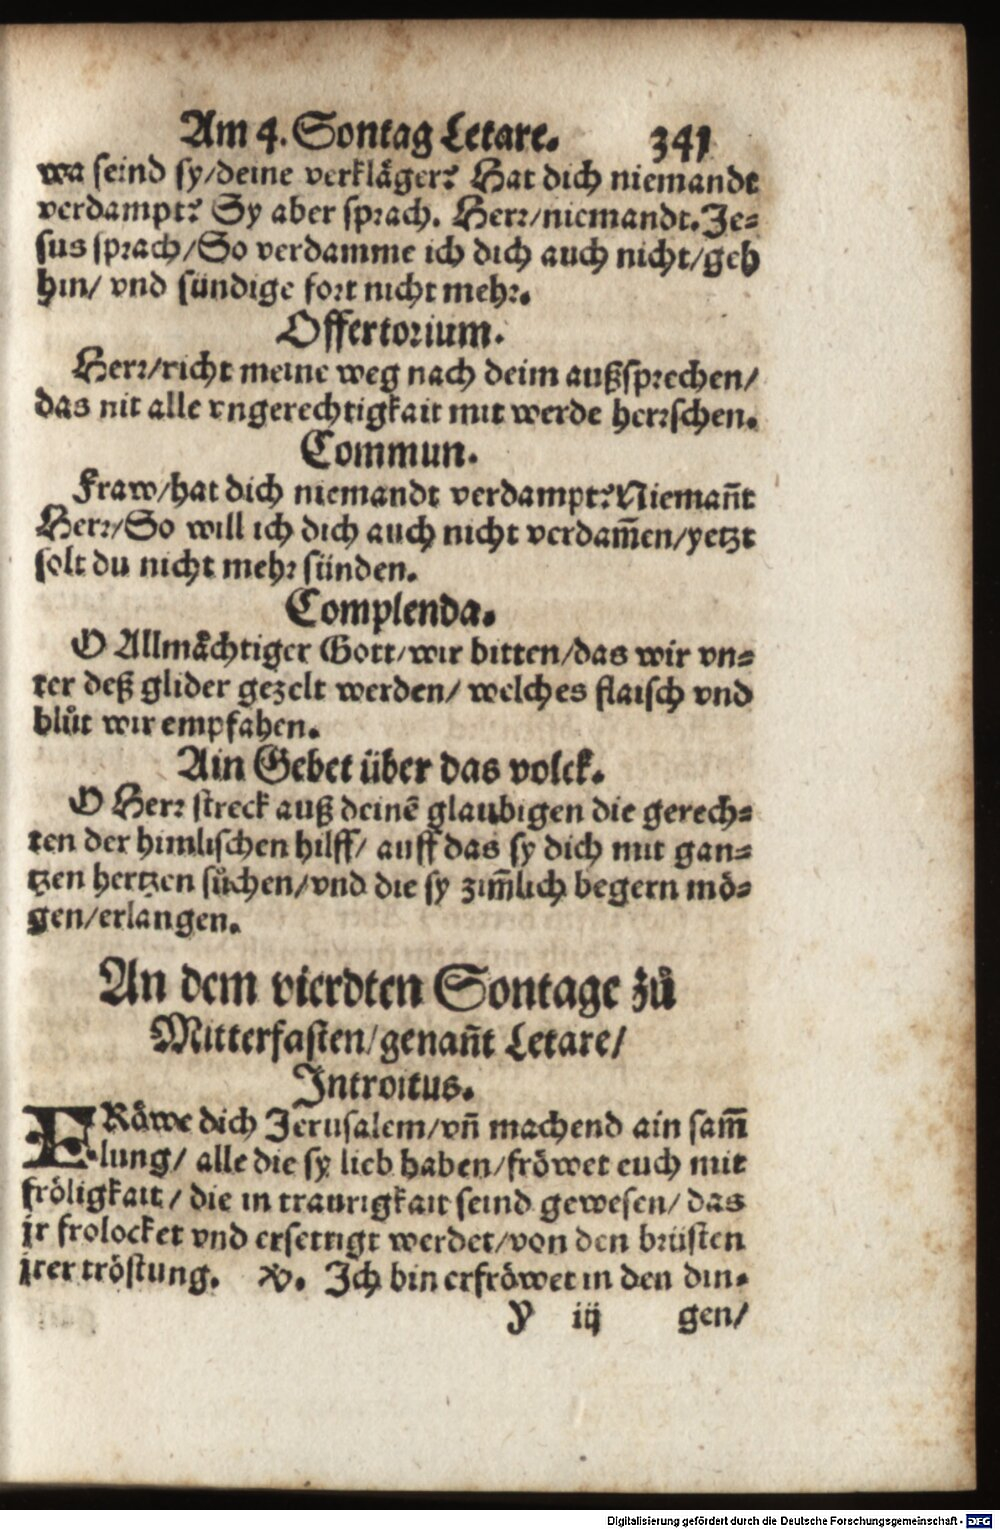 Am 4. Sontag Letare. 341
wa seind sy/deine verkläger? Hat dich niemandt
verdampt? Sy aber sprach. Herr/niemandt. Je-
sus sprach/So verdamme ich dich auch nicht/geh
hin/ vnd sündige fort nicht mehr.
Offertorium.
Herr/richt meine weg nach deim außsprechen/
das nit alle vngerechtigkait mit werde herrschen.
Commun.
Fraw/hat dich niemandt verdampt? Niemañt
Herr/So will ich dich auch nicht verdam̃en/yetzt
solt du nicht mehr sünden.
Complenda.
O Allmächtiger Gott/wir bitten/das wir vn-
ter deß glider gezelt werden/ welches flaisch vnd
blůt wir empfahen.
Ain Gebet über das volck.
O Herr streck auß deinē glaubigen die gerech-
ten der himlischen hilff/ auff das sy dich mit gan-
tzen hertzen sůchen/vnd die sy zim̃lich begern mö-
gen/erlangen.
An dem vierdten Sontage zů
Mitterfasten/genañt Letare/
Introitus.
FRöwe dich Jerusalem/vñ machend ain sam̃
lung/ alle die sy lieb haben/fröwet euch mit
fröligkait/ die in traurigkait seind gewesen/ das
jr frolocket vnd ersettigt werdet/von den brüsten
jrer tröstung. V. Ich bin erfröwet in den din-
Y iij gen/
Digitalisierung gefördert durch die Deutsche Forschungsgemeinschaft - DFG